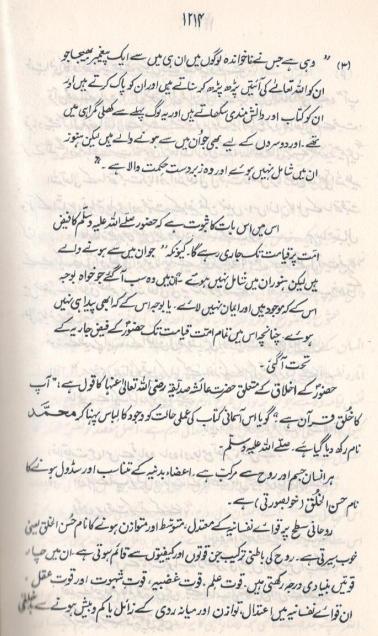 ۱۲۱۴
(۳) " وہی ہے جس نے ناخواندہ لوگوں میں ان ہی میں سے ایک پیغمبر بھیجا جو
ان کو اللہ تعالےٰ کی آیتیں پڑھ پڑھ کر سناتے ہیں اور ان کو پاک کرتے ہیں اور
ان کو کتاب اور دانش مندی سکھاتے ہیں اور یہ لوگ پہلے سے کھلی گمراہی میں
تھے۔ اور دوسروں کے لیے بھی جو اُن میں سے ہونے والے ہیں لیکن ہنوز
ان میں شامل نہیں ہوئے اور وہ زبردست حکمت والا ہے۔"
اس میں اس بات کا ثبوت ہے کہ حضور صلے اللہ علیہ وسلم کا فیض
امت پر قیامت تک جاری رہے گا۔ کیونکہ "جو ان میں سے ہونے والے
ہیں لیکن ہنوز ان میں شامل نہیں ہوئے" اُن میں وہ سب آ گئے جو خواہ بوجہ
اس کے کہ موجود ہیں اور ایمان نہیں لائے۔ یا بوجہ اس کے کہ ابھی پیدا ہی نہیں
ہوئے۔ چنانچہ اس میں تمام امت قیامت تک حضورؐ کے فیض جاریہ کے
تحت آ گئی۔
حضورؐ کے اخلاق کے متعلق حضرت عائشہ صدیقہ رضی اللہ تعالیٰ عنہا کا قول ہے: "آپ
کا خلق قرآن ہے" گویا اس آسمانی کتاب کی عملی حالت کو وجود کا لباس پہنا کر محمّد
نام رکھ دیا گیا ہے۔ صلے اللہ علیہ وسلم۔
ہر انسان جسم اور روح سے مرکب ہے۔ اعضاء بدنیہ کے تناسب اور سڈول ہونے کا
نام حسن الخَلق (خوبصورتی) ہے۔
روحانی سطح پر قوائے نفسانیہ کے معتدل، متوسط اور متوازن ہونے کا نام حُسن الخُلق یعنی
خوب سیرتی ہے۔ روح کی باطنی ترکیب جن قوتوں اور کیفیتوں سے قائم ہوتی ہے، ان میں چار
قوتیں بنیادی درجہ رکھتی ہیں۔ قوت علم، قوت غضبیہ، قوت شہوت اور قوت عقل۔
ان قوائے نفسانیہ میں اعتدال، توازن اور میانہ روی کے زائل یا کم و بیش ہونے سے